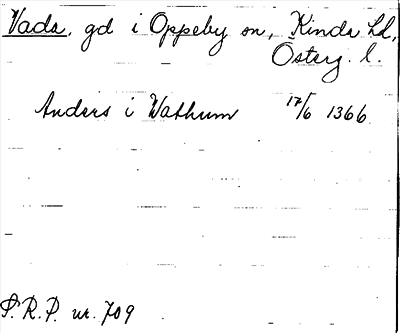 Vada, gd i Oppeby sn, Kinda hd,
Österg. l.
Anders i Wathum 17/6 1366.
S.R.P. nr. 709